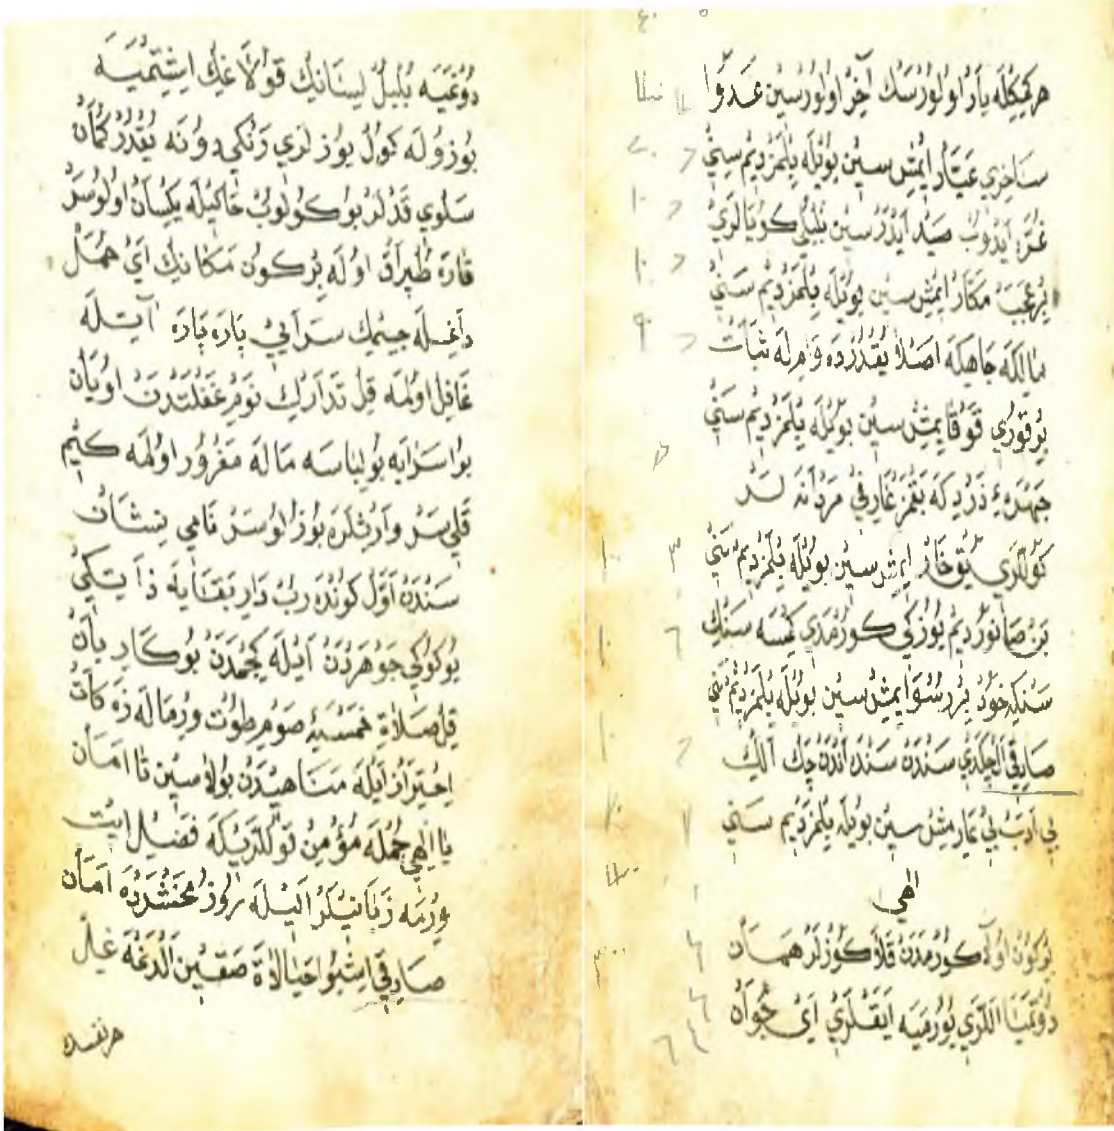 هر كيمكله يار اولورسك آخر اولورسين عدوا
ساخري عيار ايمش سين بويله بلمزديم سني
غره ايدوب صيد ايدرسين بلبلي كويالري
بر عجب مكار ايمش سين بويله بلمزديم سني
مالكه جاهكه اصلا يقدرر ده وامله ثبات
بر قوري قوقا يمش سين بويله بلمزديم سني
چهره ء زردكه بقمز عارفي مردانه لر
كوللري يوق خار ايمش سين بويله بلمزديم سني
بن صانورديم يوزكي كورمدي كمسه سنك
سنكه خود بر رسوا يمش سين بويله بلمزديم سني
صادقي الجلدي سندن سنده اندن چك الك
بي ادب بي عار مش سين بويله بلمزديم سني
الهي
بركون اولا كورمدن قلا كوزلر همان
دوتميا اللري يورميه ايقلري اي جوان
دوغيه بلبل لسانك قولاغك اشتميه
بوزوله كول يوزلري رنكي دونه يقدر كمان
سلوي قدلر بوكولوب خاكيله يكسان اولوسر
قاره طپراق اوله بركون مكانك اي همل
داغله جسمك سرايي پاره پاره ايتله
غافل اولمه قل تدارك نوم غفلتدن اويان
بو سرايه بو لباسه ماله مغرور اولمه كيم
قلي سر وارثلره بوزلوسر نامي نشان
سندن اول كونده رب دار بقايه ذاتكي
يوكوكي جوهردن ايله كچمدن بو كاربان
قل صلاة خمسيه صوم طوت ور ماله زكات
احتراز ايله مناهيدن بولاسين تا امان
يا الهي جمله مؤمن قوللريكه فضل ايت
ورمه زبانيلر اليله روز محشرده امان
صادقي اشبو خيالاة صقين الدغه غل
هر نفسده